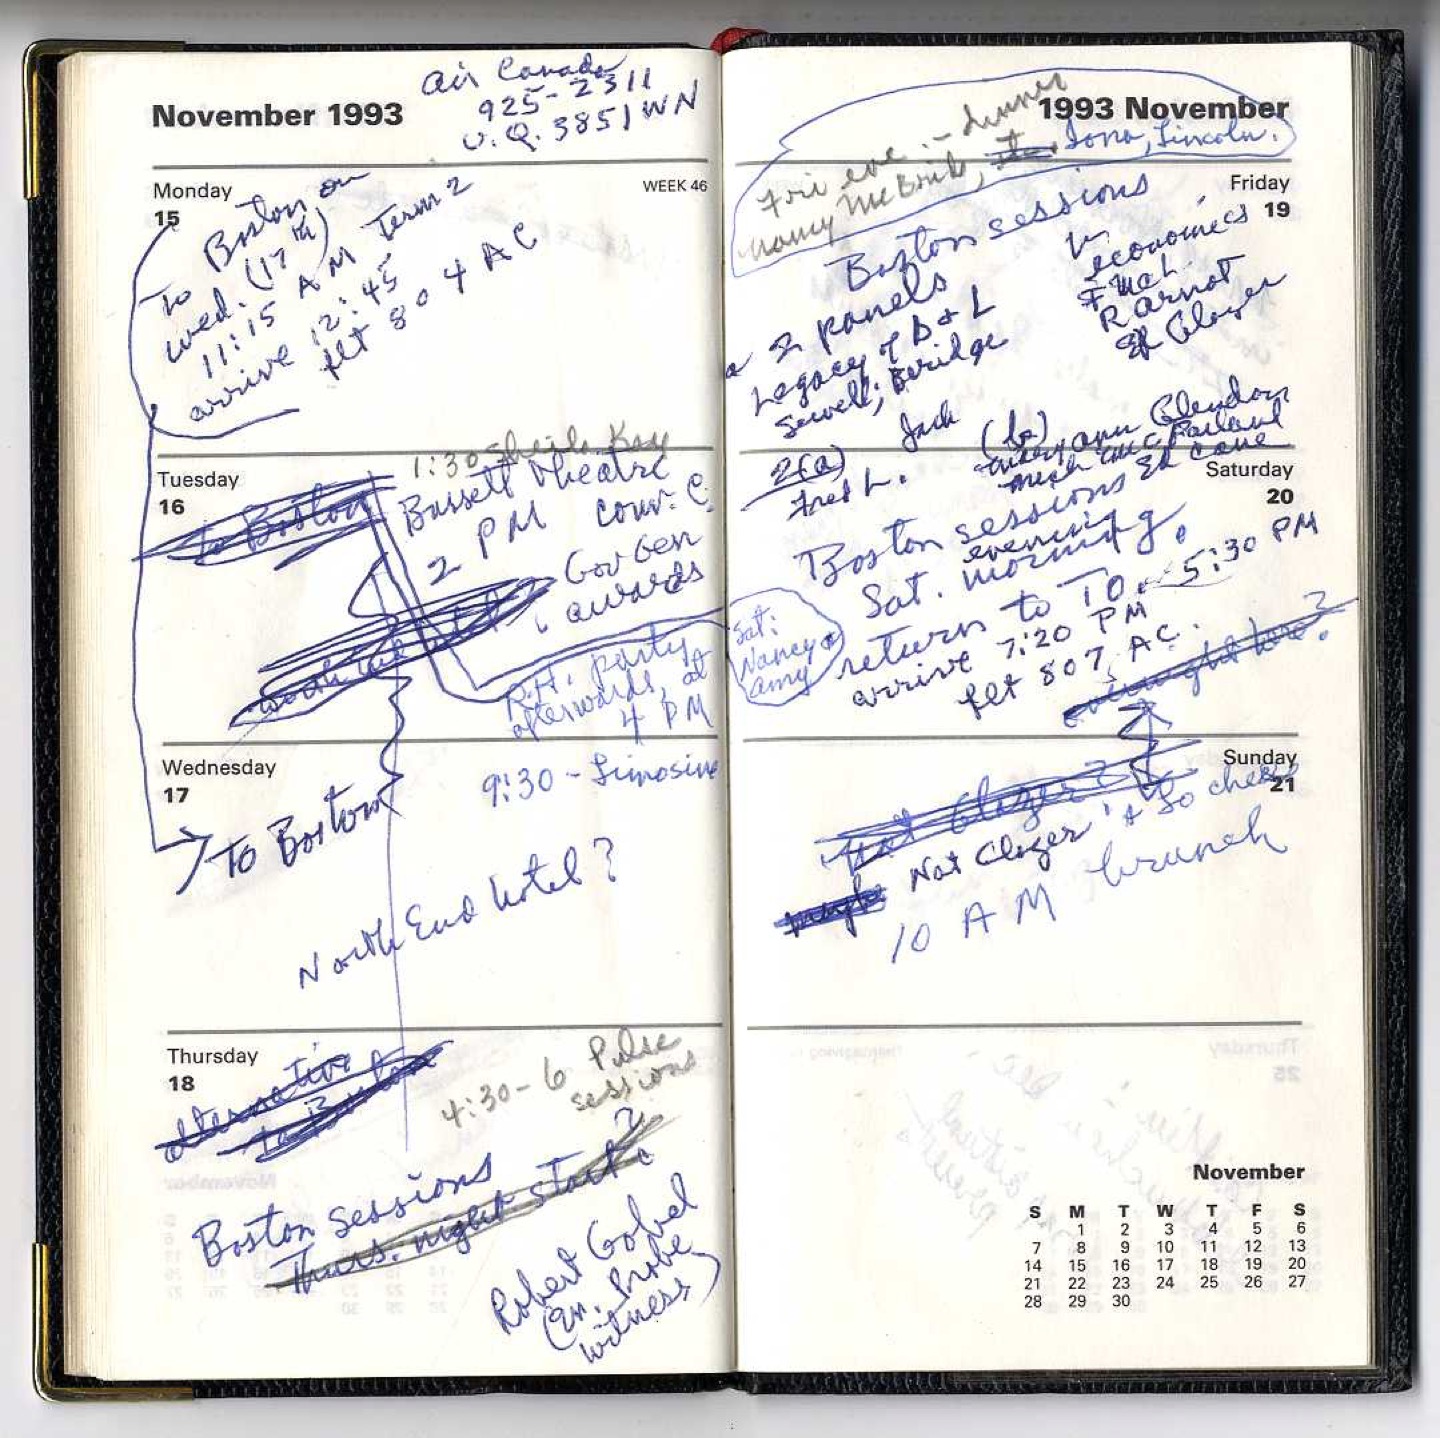 November 1993
Air Canada
925-2311
U.Q. 3851WN
Monday
15
WEEK 46
To Boston on
Wed. (17th)
11:15 AM Term 2
arrive 12:45
flt 804 AC
Tuesday
16
to Boston
1:30 Sheila Kay
Bassett Theatre
2 PM Conv. C.
Gov Gen
awards
R.H. party
afterwards, at
4 PM
Wednesday
17
9:30 - Limosine
To Boston
North End hotel?
Thursday
18
alternative
to Boston
4:30-6 Pulse
sessions
Boston sessions
Thurs. night start?
Robert Gobel
(en. Probe
witness)
1993 November
Fri eve - dinner
Nancy McBride, Iona, Lincoln.
Friday
19
Boston sessions
2 panels
Legacy of B & L
Sewell, Beridge
economics
Fmah.
R Arnot
Ed Glazer
2(a) Jack
Fred L.
(b)
Maryann Glendon
Mich McFarland
Ed Cone
Saturday
20
Boston sessions
evening
Sat. morning.
return to TO. 5:30 PM
arrive 7:20 PM
flt 807 AC.
overnight here?
Sat:
Nancy &
Amy
Sunday
21
Nat Glazer?
Nat Glazer & Lochees
maybe
10 AM brunch
November
S M T W T F S
1 2 3 4 5 6
7 8 9 10 11 12 13
14 15 16 17 18 19 20
21 22 23 24 25 26 27
28 29 30